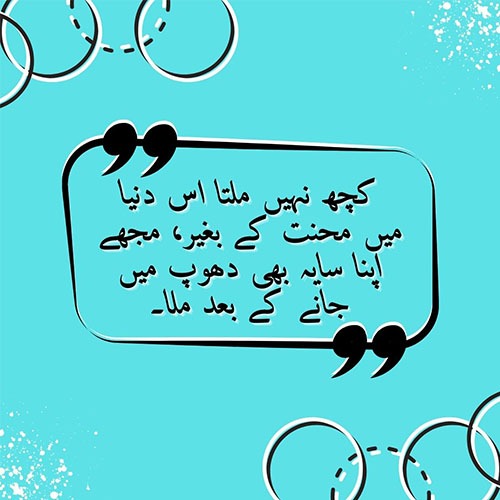 کچھ نہیں ملتا اس دنیا
میں محنت کے بغیر، مجھے
اپنا سایہ بھی دھوپ میں
جانے کے بعد ملا۔